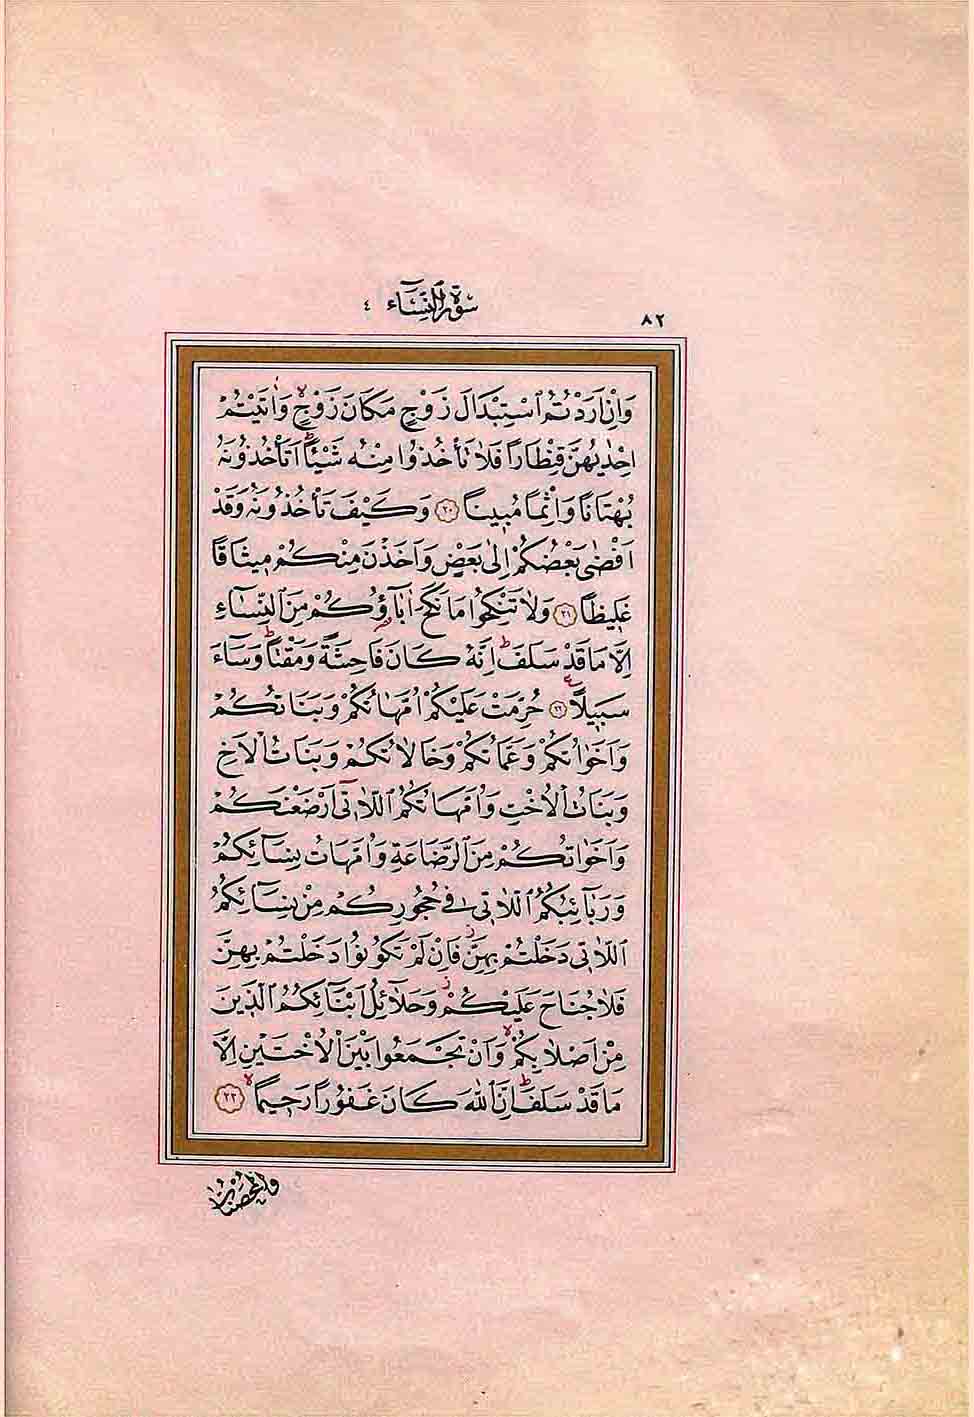 ٨٢
سورة النساء ٤
وَاِنْ اَرَدْتُمُ اسْتِبْدَالَ زَوْجٍ مَكَانَ زَوْجٍۙ وَاٰتَيْتُمْ
اِحْدٰيهُنَّ قِنْطَارًا فَلَا تَأْخُذُوا مِنْهُ شَيْـًٔاۜ اَتَأْخُذُونَهُ
بُهْتَانًا وَاِثْمًا مُبِينًا ﴿٢٠﴾ وَكَيْفَ تَأْخُذُونَهُ وَقَدْ
اَفْضٰى بَعْضُكُمْ اِلٰى بَعْضٍ وَاَخَذْنَ مِنْكُمْ مِيثَاقًا
غَلِيظًا ﴿٢١﴾ وَلَا تَنْكِحُوا مَا نَكَحَ اٰبَٓاؤُ۬كُمْ مِنَ النِّسَٓاءِ
اِلَّا مَا قَدْ سَلَفَۜ اِنَّهُ كَانَ فَاحِشَةً وَمَقْتًاۜ وَسَٓاءَ
سَبِيلًا ﴿٢٢﴾ ع حُرِّمَتْ عَلَيْكُمْ اُمَّهَاتُكُمْ وَبَنَاتُكُمْ
وَاَخَوَاتُكُمْ وَعَمَّاتُكُمْ وَخَالَاتُكُمْ وَبَنَاتُ الْاَخِ
وَبَنَاتُ الْاُخْتِ وَاُمَّهَاتُكُمُ الّٰلَاتِٓي اَرْضَعْنَكُمْ
وَاَخَوَاتُكُمْ مِنَ الرَّضَاعَةِ وَاُمَّهَاتُ نِسَٓائِكُمْ
وَرَبَٓائِبُكُمُ الّٰلَاتِي فِي حُجُورِكُمْ مِنْ نِسَٓائِكُمُ
الّٰلَاتِي دَخَلْتُمْ بِهِنَّۘ فَاِنْ لَمْ تَكُونُوا دَخَلْتُمْ بِهِنَّ
فَلَا جُنَاحَ عَلَيْكُمْۘ وَحَلَٓائِلُ اَبْنَٓائِكُمُ الَّذِينَ
مِنْ اَصْلَابِكُمْۙ وَاَنْ تَجْمَعُوا بَيْنَ الْاُخْتَيْنِ اِلَّا
مَا قَدْ سَلَفَۜ اِنَّ اللّٰهَ كَانَ غَفُورًا رَحِيمًاۙ ﴿٢٣﴾
وَالْمُحْصَنَاتُ